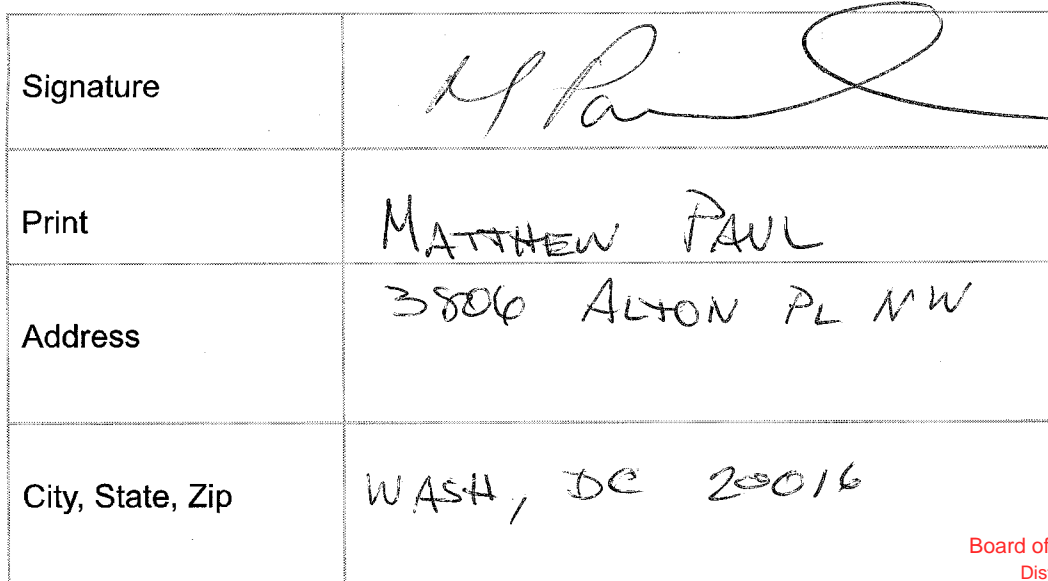 Signature M Paul
Print MATTHEW PAUL
Address 3806 ALTON PL NW
City, State, Zip WASH, DC 20016
Board of
Dis